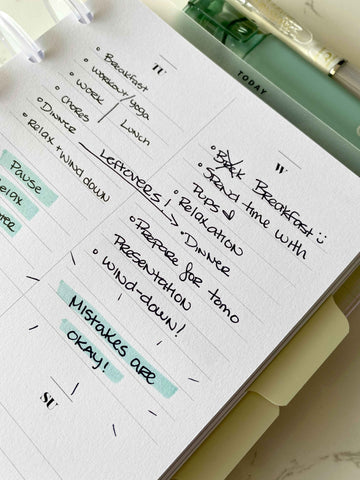 TODAY
TU
• Breakfast
• Workout/yoga
• Work
• Chores | Lunch
• Dinner
• Relax + wind down
Leftovers!
W
• Breakfast :)
• Spend time with
pups ♡
• Relaxation
• Dinner
• Prepare for tomo
presentation
• wind-down!
Pause
elax
Mistakes are
okay!
SU